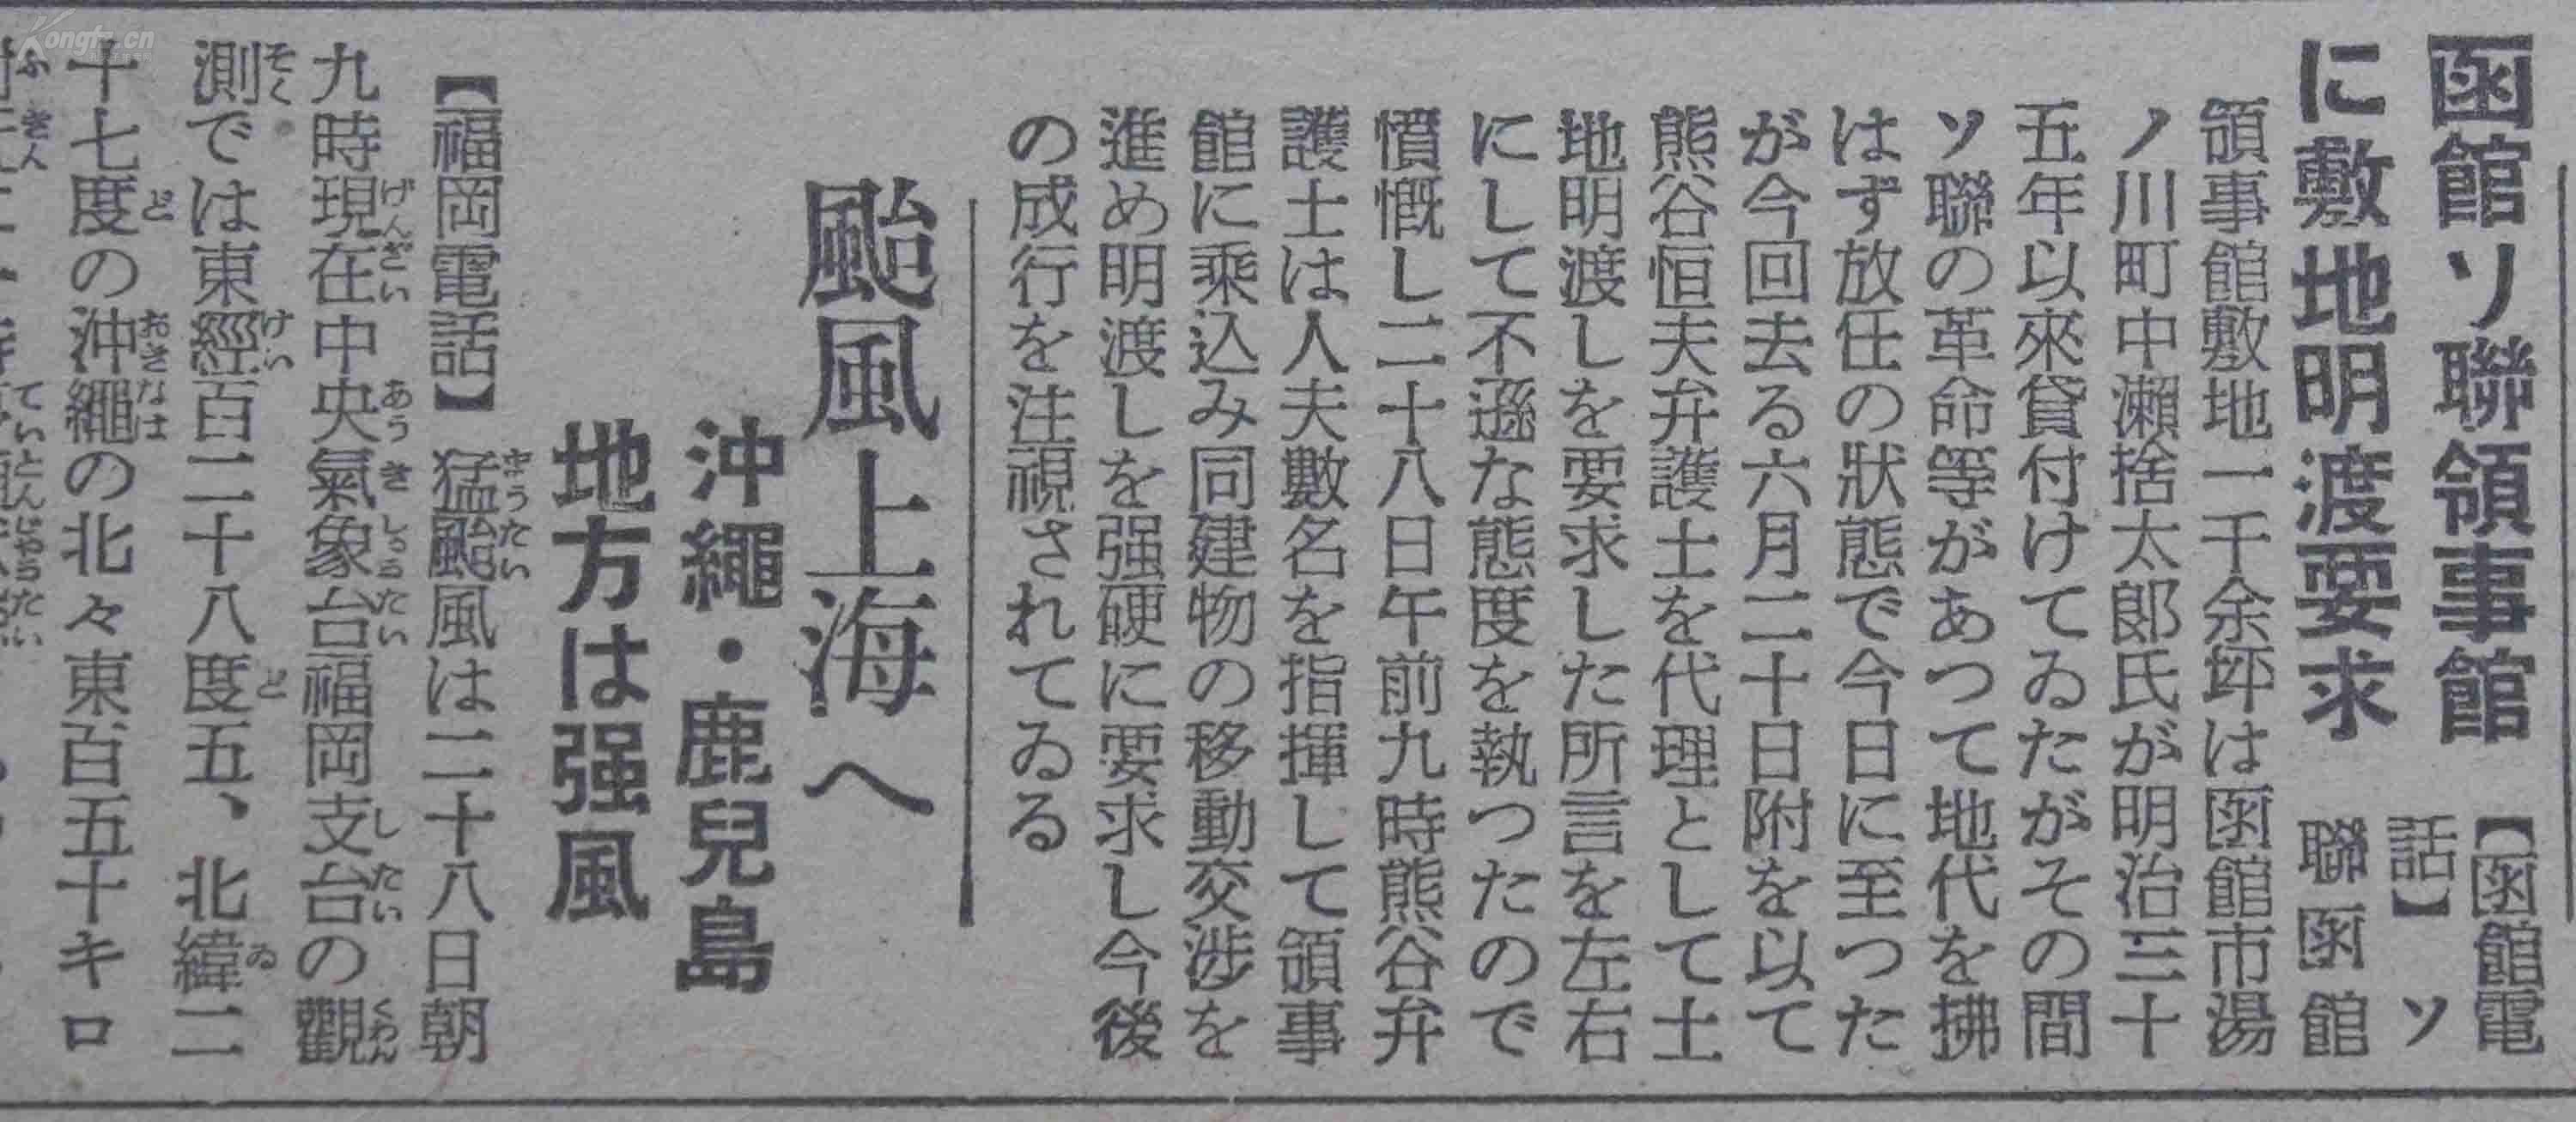 函館ソ聯領事館
に敷地明渡要求
【函館電
話】ソ
聯函館
領事館敷地一千余坪は函館市湯
ノ川町中瀨捨太郞氏が明治三十
五年以來貸付けてゐたがその間
ソ聯の革命等があつて地代を拂
はず放任の狀態で今日に至つた
が今回去る六月二十日附を以て
熊谷恒夫弁護士を代理として土
地明渡しを要求した所言を左右
にして不遜な態度を執つたので
憤慨し二十八日午前九時熊谷弁
護士は人夫數名を指揮して領事
館に乘込み同建物の移動交涉を
進め明渡しを强硬に要求し今後
の成行を注視されてゐる
颱風上海へ
沖繩・鹿兒島
地方は强風
【福岡電話】猛颱風は二十八日朝
九時現在中央氣象台福岡支台の觀
測では東經百二十八度五、北緯二
十七度の沖繩の北々東百五十キロ
Kongfz.cn